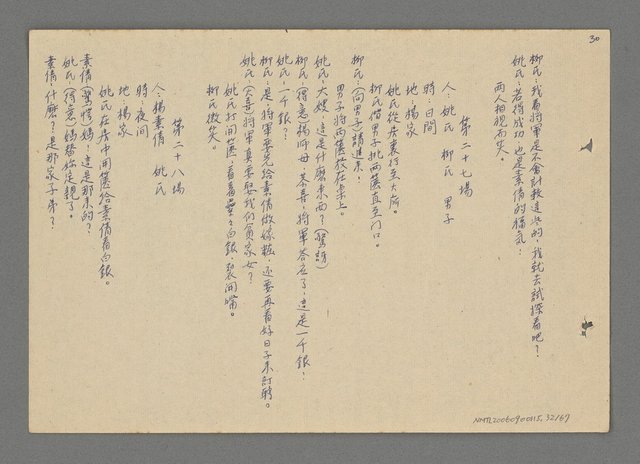 30
柳氏：我看將軍是不會計較這些的，我就去試探看吧？
姚氏：若得成功也是素倩的福氣！
兩人相視而笑。
第二十七場
人：姚氏　柳氏　男子
時：日間
地：楊家
姚氏從房裏行至大廳。
柳氏偕男子挑兩籮直至門口。
柳氏（向男子）請進來！
男子將兩籮放在桌上。
姚氏：大嫂，這是什麼東西？（驚訝）
柳氏（得意）楊師母，恭喜，將軍答應了，這是一千銀！
姚氏：一千銀？
柳氏：是，將軍要先給素倩做嫁粧，還要再看好日子來訂聘。
姚氏（大喜）將軍真要娶我們貧家女？
姚氏打開籮，看着疊々白銀，裂開嘴。
柳氏微笑。
第二十八場
人：楊素倩　姚氏
時：夜間
地：楊家
姚氏在房中開籮給素倩看白銀。
素倩（驚愕）媽！這是那來的？
姚氏（得意）媽替妳定親了。
素倩：什麼？是那家子弟？
NMTL20060900115, 32/69